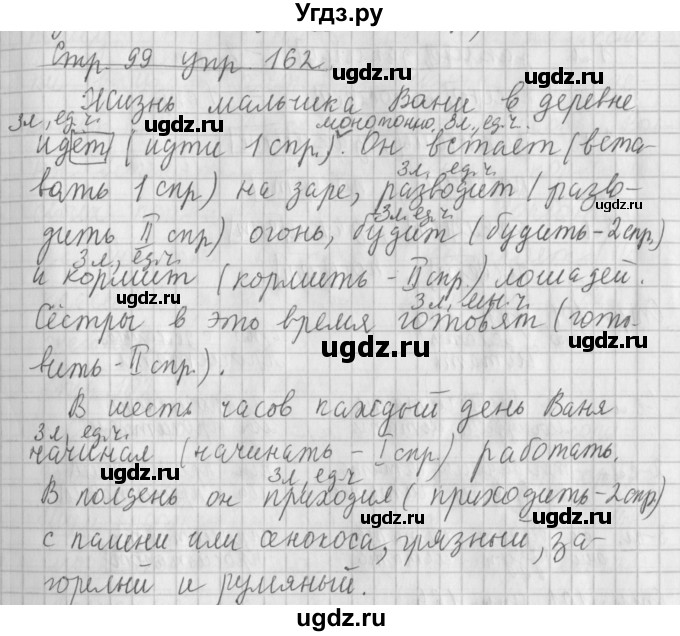 Угдз.ру
Стр 99 упр. 162
Жизнь мальчика Вани в деревне
3л, ед.ч. монотонно. 3л, ед.ч.
идёт (идти 1 спр.). Он встаёт (вста-
3л. ед.ч.
вать 1 спр.) на заре, разводит (разво-
ugdz.ru
3л. ед.ч.
дить II спр) огонь, будит (будить-2спр.)
3л, ед.ч.
и кормит (кормить - II спр) лошадей.
ugdz.ru
3л, мн.ч.
Сёстры в это время готовят (гото-
ugdz.ru
вить - II спр.).
ugdz.ru
В шесть часов каждый день Ваня
3л, ед.ч.
начинал (начинать - I спр.) работать.
ugdz.ru
3л, ед.ч
В полдень он приходил (приходить-2спр)
ugdz.ru
с пашни или сенокоса, грязный, за-
горелый и румяный.
ugdz.ru